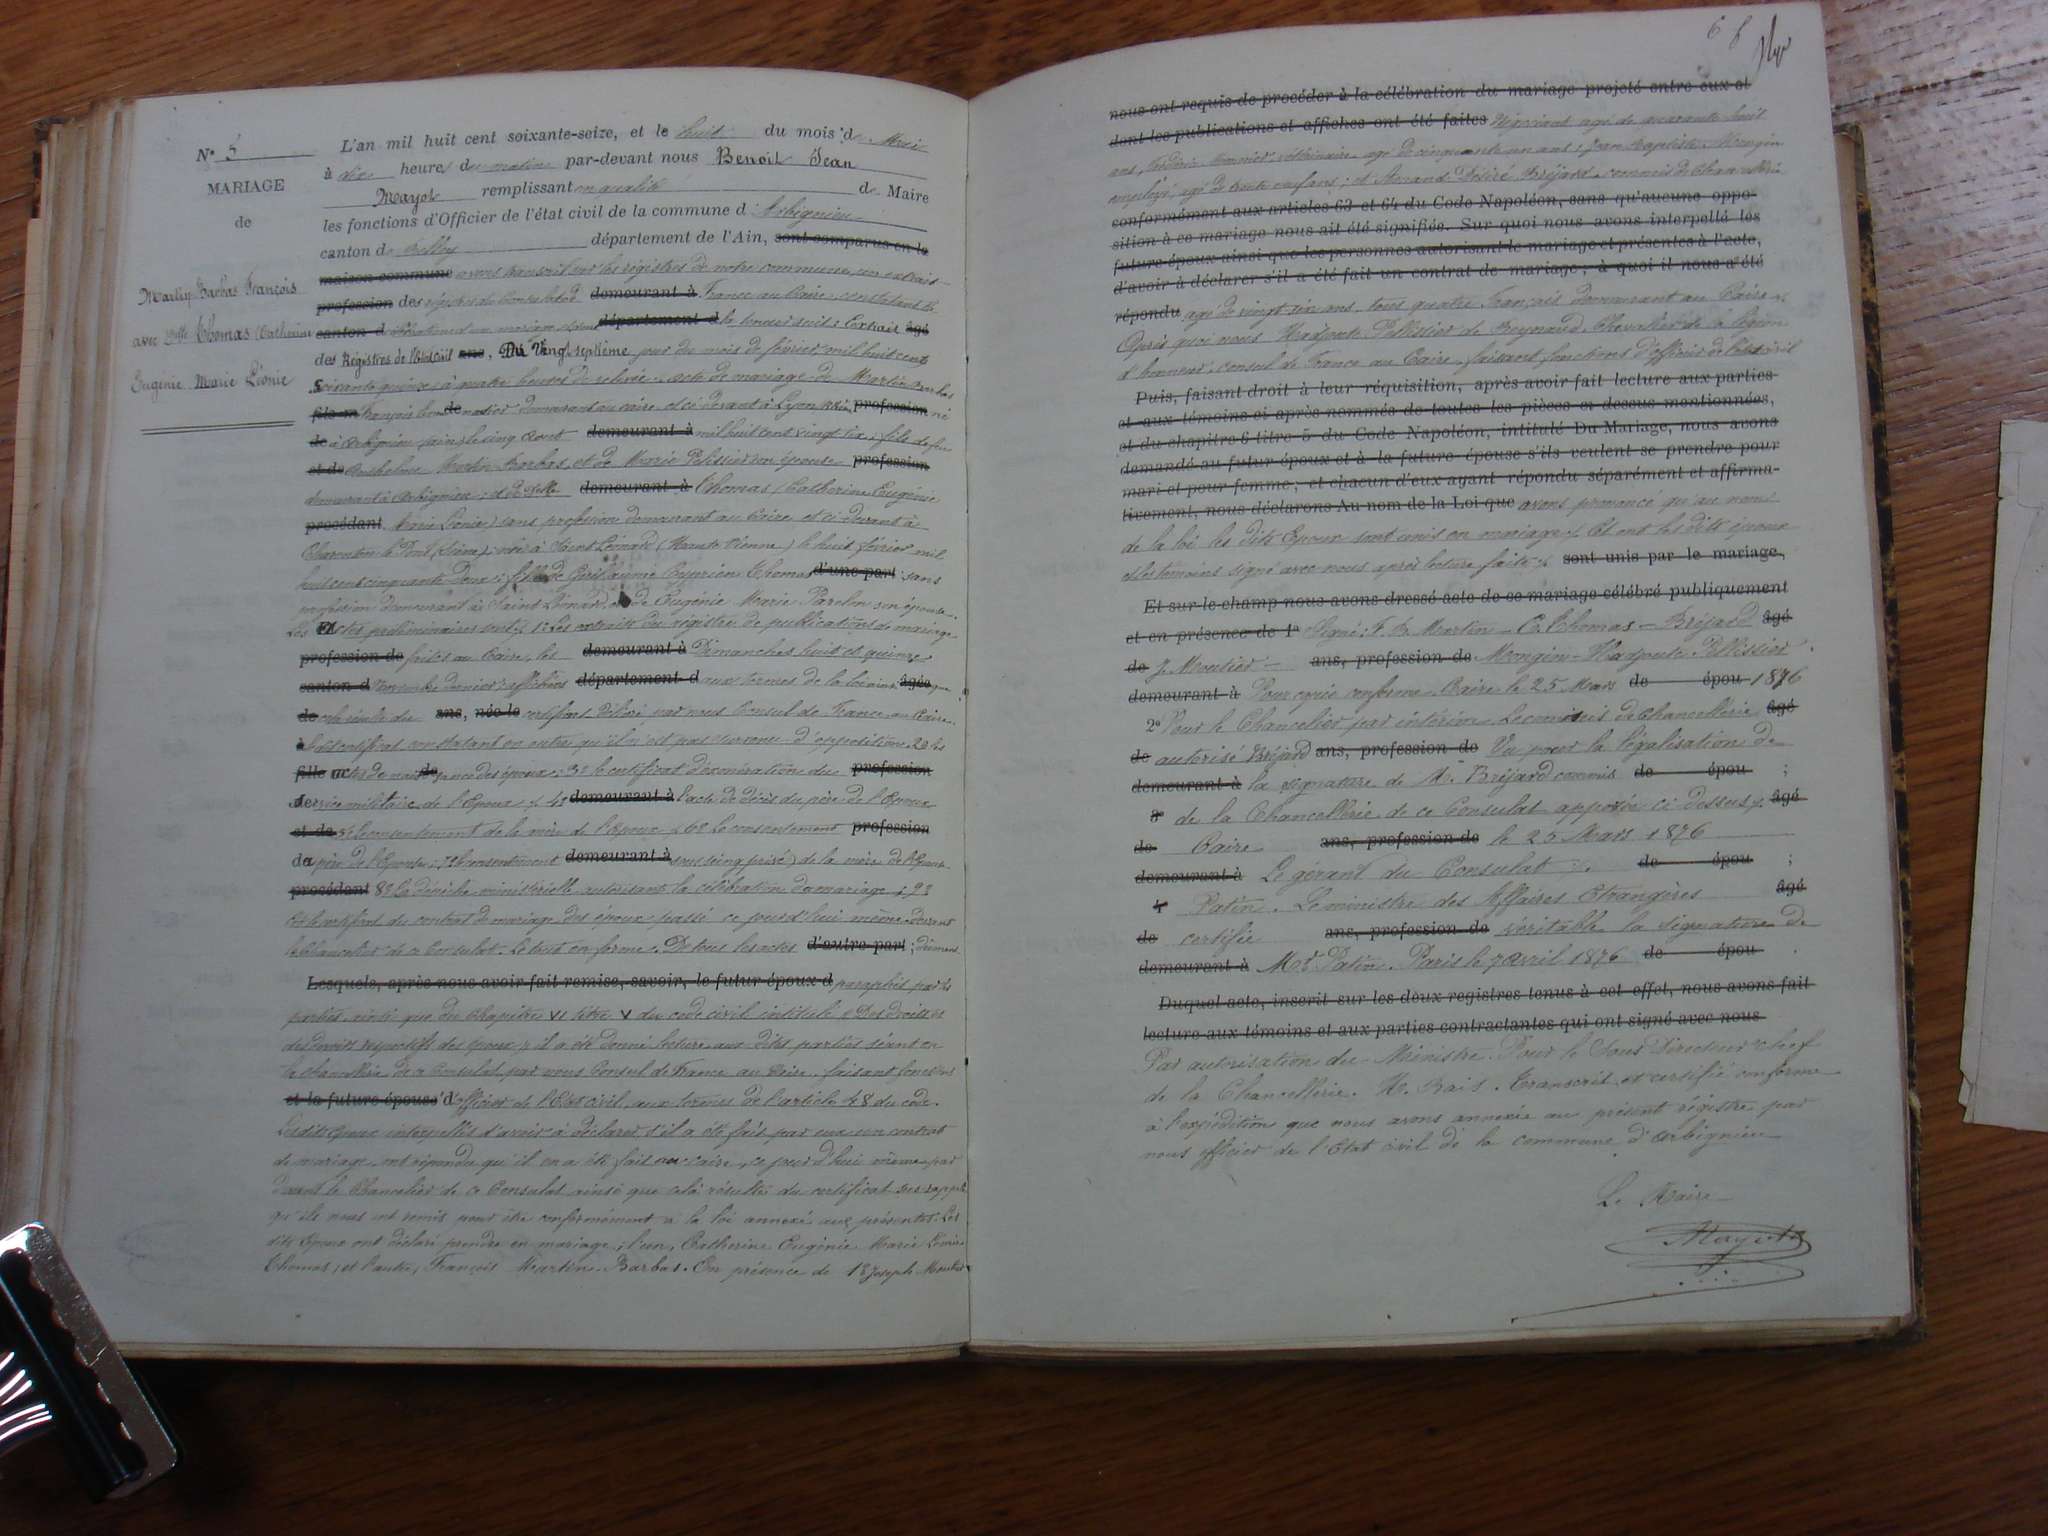 N° 5
MARIAGE
de
Martin Barbas François
avec Delle Thomas (Catherine
Eugénie Marie Léonie
L'an mil huit cent soixante-seize, et le huit du mois de Mai
à dix heures du matin par-devant nous Benoît Jean
Mayot remplissant en qualité de Maire
les fonctions d'Officier de l'état civil de la commune d'Arbignieu
canton de Belley département de l'Ain, sont comparus en la
maison commune avons transcrit sur les registres de notre commune, un extrait
profession des régistres du Consulat de demeurant à France au Caire, constatant la
canton d célébration d'un mariage dont département d la teneur suit : Extrait âgé
des Régistres de l'état civil ans, Du Vingt septième jour du mois de février, mil huit cent
Soixante quinze, à quatre heures de relevée. acte de mariage de Martin Barbas
fils m François de demeurant au Caire et ci devant à Lyon Rhône profession né
de à Arbignieu (ain) le cinq Août demeurant à mil huit cent vingt six, fils de feu
et de Anthelme Martin Barbas, et de Marie Pelissier son épouse profession
demeurant à Arbignieu ; et de Delle demeurant à Thomas (Catherine Eugénie
procédant Marie Léonie) sans profession demeurant au Caire et ci devant à
Charenton le Pont (Seine), née à Saint Léonard (Haute Vienne) le huit février mil
huit cent cinquante deux ; fille de Guillaume Cyprien Thomas d'une part sans
profession demeurant à Saint Léonard, et de Eugénie Marie Parelon son épouse.
Les Actes préliminaires sont : 1° Les extraits du registre de publications de mariage
profession de faites au Caire, les demeurant à Dimanches huit et quinze
canton d Novembre dernier & affichées département d aux termes de la loi ainsi âgée que
de cela résulte du ans, née le certificat délivré par nous Consul de France au Caire.
à ledit certificat constatant en outre qu'il n'est pas survenu d'opposition. 2° les
fille actes de naissance des époux ; 3° le certificat d'exonération du profession
service militaire de l'Epoux ; 4° demeurant à l'acte de décès du père de l'Epoux
et de 5° le consentement de la mère de l'Epoux ; 6° Le consentement profession
du père de l'Epouse ; 7° le consentement demeurant à (sous seing privé) de la mère de l'Epouse
procédant 8° La dépêche ministérielle autorisant la célébration du mariage ; 9°
Et le certificat du contrat de mariage des époux passé ce jourd'hui même devant
le Chancelier de ce Consulat. Le tout en forme. De tous les actes d'autre part ; dûment
Lesquels, après nous avoir fait remise, savoir, le futur époux d paraphés par les
parties ainsi que du chapitre VI titre V du code civil intitulé « Des droits et
des devoirs respectifs des époux » il a été donné lecture aux dites parties séant en
la chancellerie de ce Consulat par nous Consul de France au Caire, faisant fonctions
et la future épouse d'officier de l'Etat civil, aux termes de l'article 48 du code.
Lesdits Epoux interpellés d'avoir à déclarer s'il a été fait par eux un contrat
de mariage, ont répondu qu'il en a été fait au caire, ce jourd'hui même par
devant le Chancelier de ce Consulat ainsi que celà résulte du certificat sus rappelé
qu'ils nous ont remis pour être conformément à la loi annexé aux présentes. Les
dits Epoux ont déclaré prendre en mariage ; l'un, Catherine Eugénie Marie Léonie
Thomas, et l'autre, François Martin-Barbas. En présence de 1° Joseph Moutier
68
nous ont requis de procéder à la célébration du mariage projeté entre eux et
dont les publications et affiches ont été faites Négociant agé de quarante huit
ans, Frédéric vétérinaire agé de cinquante un ans ; Jean Baptiste Mongin
employé, agé de trente ans ; et Armand Désiré Bréjard, commis de Chancellerie
conformément aux articles 63 et 64 du Code Napoléon, sans qu'aucune oppo-
sition à ce mariage nous ait été signifiée. Sur quoi nous avons interpellé les
future époux ainsi que les personnes autorisant le mariage et présentes à l'acte,
d'avoir à déclarer s'il a été fait un contrat de mariage ; à quoi il nous a été
répondu agé de vingt six ans, tous quatre Français demeurant au Caire.
Après quoi nous Hadjoute Pellissier de Reynaud, Chevalier de la légion
d'honneur, consul de France au Caire, faisant fonctions d'officier de l'état civil
Puis, faisant droit à leur réquisition, après avoir fait lecture aux parties
et aux témoins ci après nommés de toutes les pièces ci dessus mentionnées,
et du chapitre 6 titre 5 du Code Napoléon, intitulé Du Mariage, nous avons
demandé au futur époux et à la future épouse s'ils veulent se prendre pour
mari et pour femme ; et chacun d'eux ayant répondu séparément et affirma-
tivement, nous déclarons Au nom de la Loi que avons prononcé qu'au nom
de la loi les dits Epoux sont unis en mariage. Et ont les dits époux
et les témoins signé avec nous après lecture faite. sont unis par le mariage,
Et sur-le-champ nous avons dressé acte de ce mariage célébré publiquement
et en présence de 1° Signé : F. B. Martin - C. Thomas - Bréjard âgé
de J. Moutier - ans, profession de Mongin - Hadjoute Pellissier
demeurant à Pour copie conforme Caire le 25 Mars de épou 1876
2° Pour le Chancelier par intérim Le commis de Chancellerie âgé
de autorisé Bréjard ans, profession de Vu pour la légalisation de
demeurant à la signature de M. Bréjard commis de épou ;
3° de la Chancellerie de ce Consulat apposée ci dessus âgé
de Caire ans, profession de le 25 Mars 1876
demeurant à Le gérant du Consulat de épou ;
4° Patin. Le ministre des Affaires Etrangères âgé
de certifie ans, profession de véritable la signature de
demeurant à Mr Patin. Paris le 7 Avril 1876 de épou .
Duquel acte, inscrit sur les deux registres tenus à cet effet, nous avons fait
lecture aux témoins et aux parties contractantes qui ont signé avec nous
Par autorisation du Ministre. Pour le Sous Directeur chef
de la Chancellerie. Transcrit et certifié conforme
à l'expédition que nous avons annexée au présent régistre par
nous officier de l'Etat civil de la commune d'Arbignieu
Le Maire
Mayot